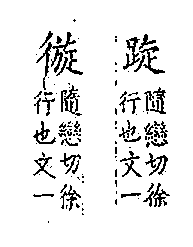 隨戀切徐
行也文一
隨戀切徐
行也文一